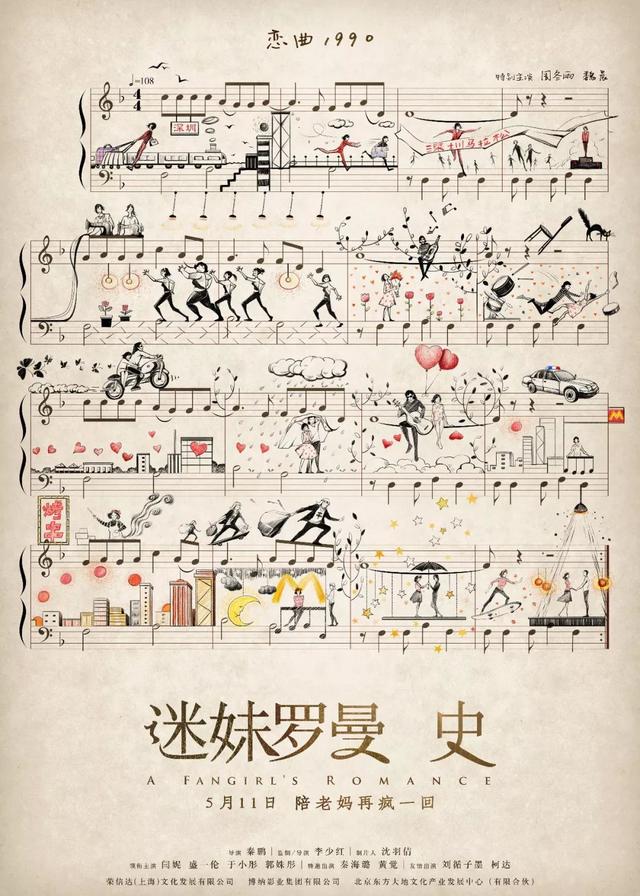 恋曲1990
♩=108
特别主演 周冬雨 魏晨
4
4
深圳
深圳马拉松
M
烤串
M
迷妹罗曼 史
A FANGIRL'S ROMANCE
5月11日 陪老妈再疯一回
导演 秦鹏 | 监制/导演 李少红 | 制片人 沈羽倩
领衔主演 闫妮 盛一伦 于小彤 郭姝彤 | 特邀出演 秦海璐 黄觉 | 友情出演 刘循子墨 柯达
荣信达(上海)文化发展有限公司 博纳影业集团有限公司 北京东方大地文化产业发展中心(有限合伙)